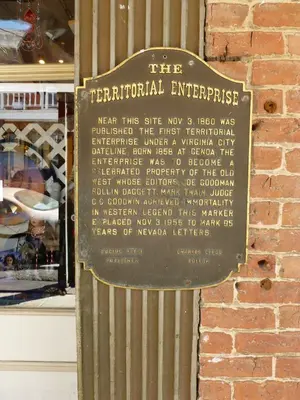 THE
TERRITORIAL ENTERPRISE
NEAR THIS SITE NOV 3, 1860 WAS
PUBLISHED THE FIRST TERRITORIAL
ENTERPRISE UNDER A VIRGINIA CITY
DATELINE. BORN 1858 AT GENOA THE
ENTERPRISE WAS TO BECOME A
CELEBRATED PROPERTY OF THE OLD
WEST WHOSE EDITORS, JOE GOODMAN
ROLLIN DAGGETT, MARK TWAIN, JUDGE
C.C. GOODWIN, ACHIEVED IMMORTALITY
IN WESTERN LEGEND THIS MARKER
PLACED NOV 3, 1955 TO MARK 95
YEARS OF NEVADA LETTERS.
PUBLISHER EDITOR